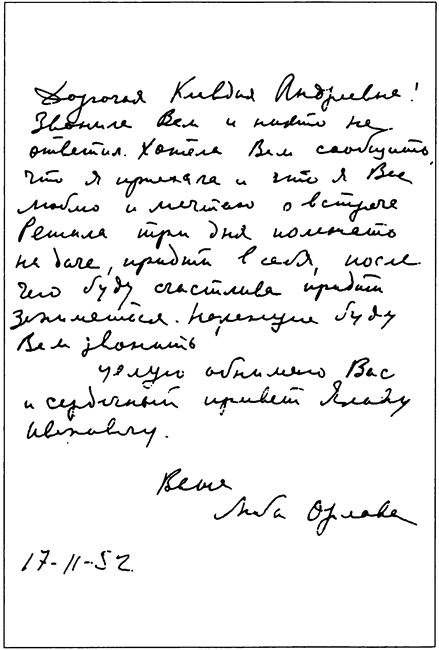 Дорогая Клавдия Андреевна!
Звонила Вам и никто не
ответил. Хотела Вам сообщить,
что я приехала и что я Вас
люблю и мечтаю о встрече
Решила три дня полежать
на даче, придти в себя, после
чего буду счастлива придти
заниматься. Накануне буду
Вам звонить
Целую обнимаю Вас
и сердечный привет
Ивановичу.
Ваша
Люба Орлова
17-II-52